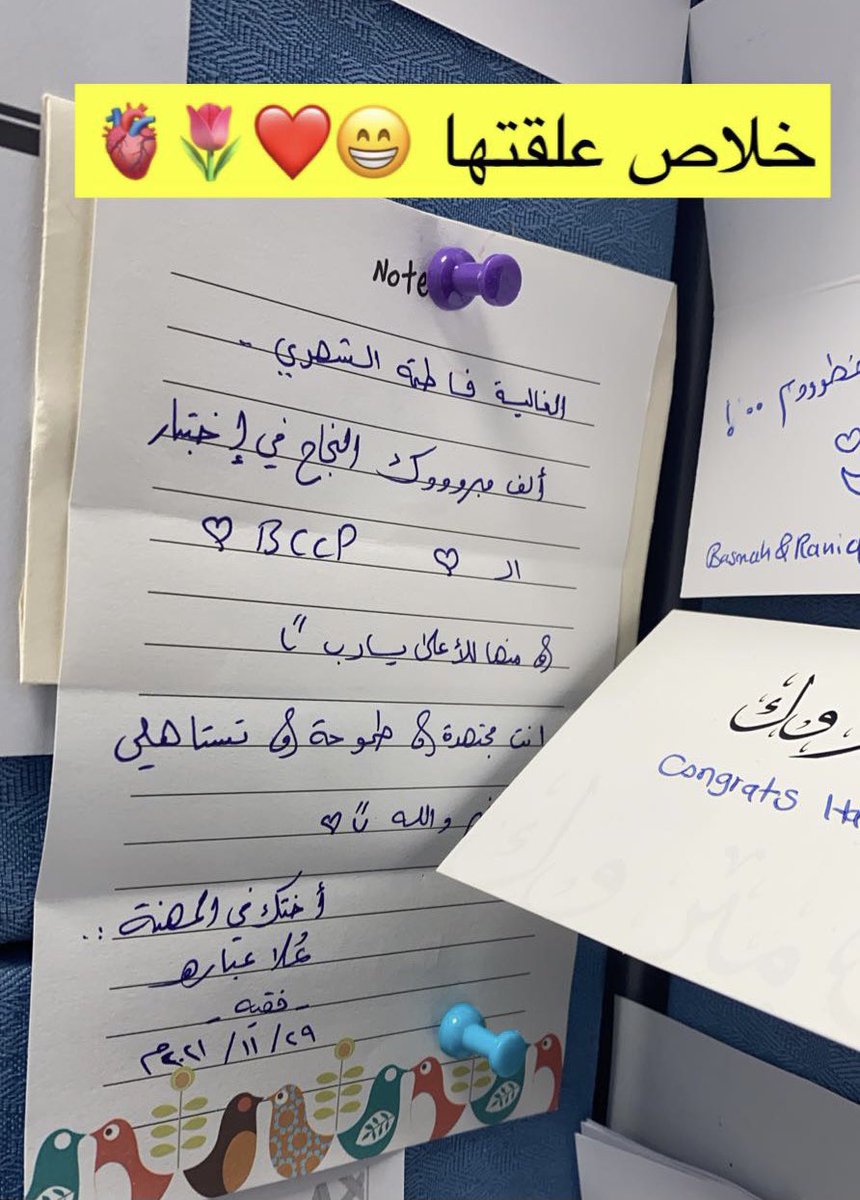 خلاص علقتها 😁❤️🌷🫀
Note
الغالية فاطمة الشهري -
ألف مبروووك النجاح في إختبار
الـ ♡ BCCP ♡
و منها للأعلى يارب
انت مجتهدة و طموحة و تستاهلي
والله ♡
أختك في المهنة ..
عُلا عبّاره
- فقيه -
٢٩ / ١١ / ٢٠٢١م
Basmah & Rani
روك
Congrats Ha